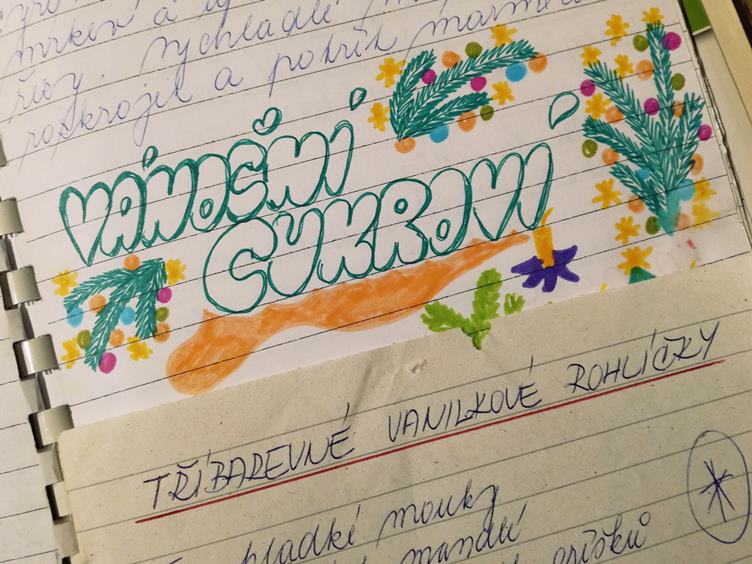 mrkev a
řezy. vychladlé
rozkrojit a potřít
VÁNOČNÍ
CUKROVÍ
TŘÍBAREVNÉ VANILKOVÉ ROHLÍČKY
hladké mouky
mandlí
oříšků